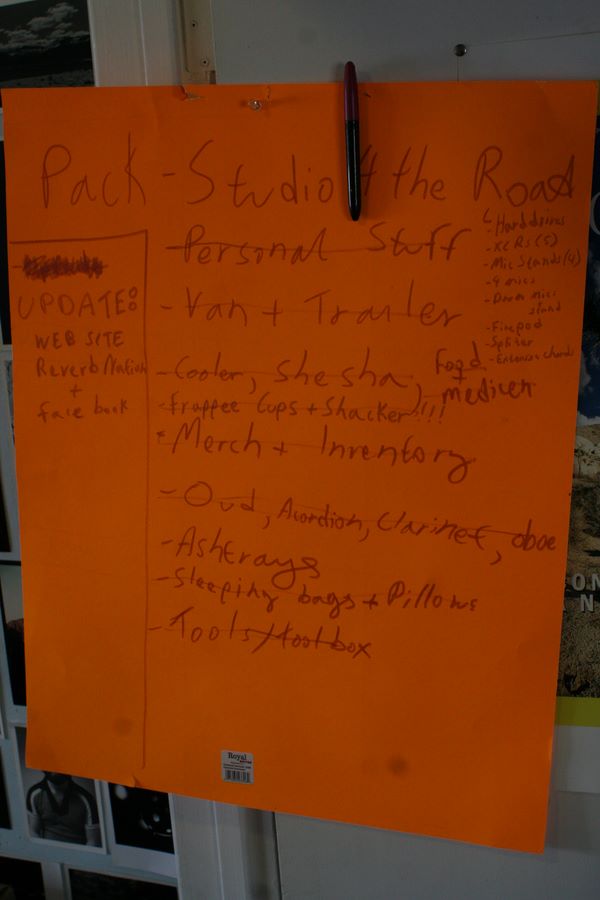 Pack - Studio 4 the Road
- Harddrives
- XLRs (5)
- Mic Stands (4)
- 9 mics
- Drum mic
stand
- Firepod
- Spliter
- Extension chords
UPDATE:
WEB SITE
ReverbNation
+
face book
- Personal Stuff
- Van + Trailer
- Cooler, shesha, Food + mediken
- frappee cups + Shacker!!!!
* Merch + Inventory
- Oud, Acordion, Clarinet, oboe
- Ashtrays
- Sleeping bags + Pillows
- Tools/toolbox
Royal
ON
N